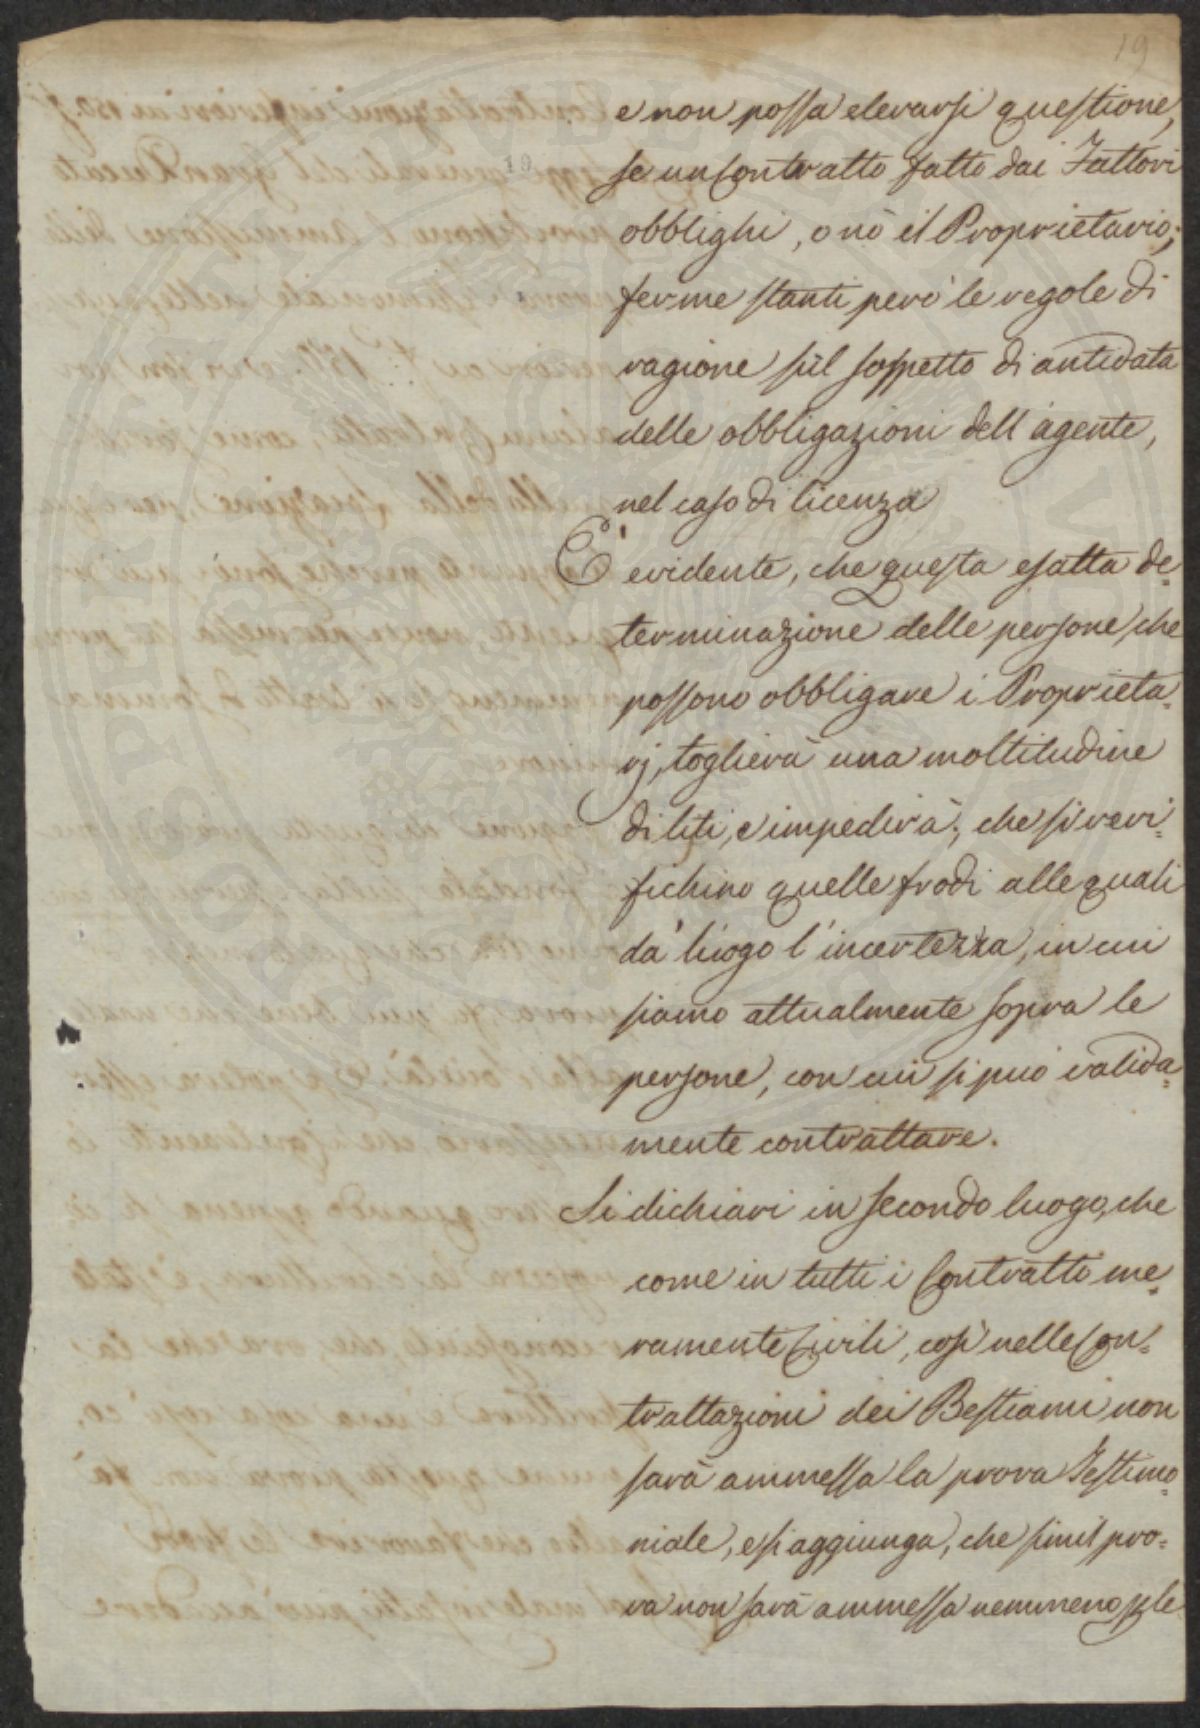 19
e non possa elevarsi questione,
se un Contratto fatto dai Fattori
obblighi, o nò il Proprietario;
ferme stanti però le regole di
ragione sul sospetto di antidata
delle obbligazioni dell'agente,
nel caso di licenza
È evidente, che questa esatta de=
terminazione delle persone, che
possono obbligare i Proprieta=
rj, toglierà una moltitudine
di liti, e impedirà, che si veri=
fichino quelle frodi alle quali
dà luogo l'incertezza, in cui
siamo attualmente sopra le
persone, con cui si può valida=
mente contrattare.
Si dichiari in secondo luogo, che
come in tutti i Contratti me=
ramente Civili, così nelle Con=
trattazioni dei Bestiami non
sarà ammessa la prova Testimo=
niale, e si aggiunga, che simil pro=
va non sarà ammessa nemmeno p le